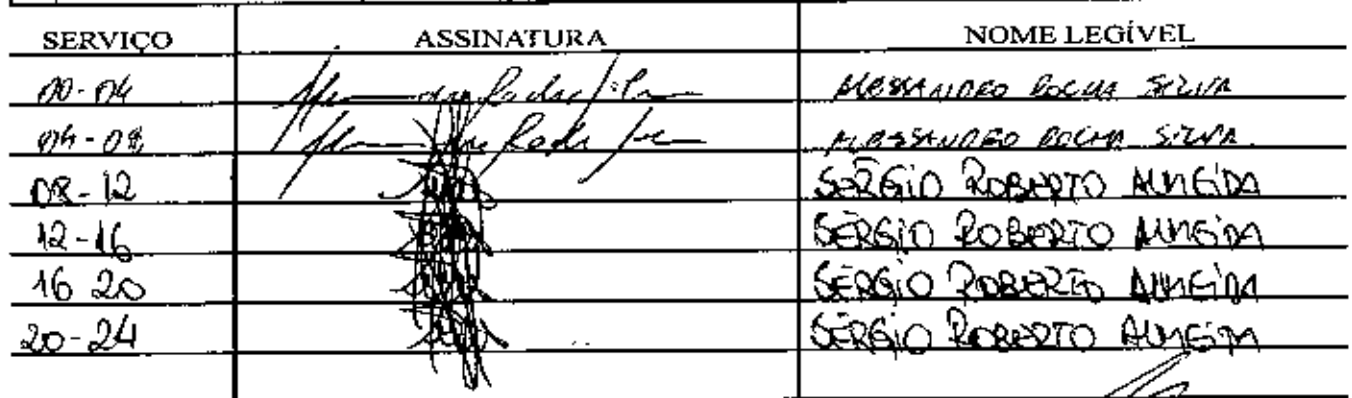 SERVIÇO ASSINATURA NOME LEGÍVEL
00-04 ALESSANDRO ROCHA SILVA
04-08 ALESSANDRO ROCHA SILVA
08-12 SÉRGIO ROBERTO ALMEIDA
12-16 SÉRGIO ROBERTO ALMEIDA
16 20 SÉRGIO ROBERTO ALMEIDA
20-24 SÉRGIO ROBERTO ALMEIDA